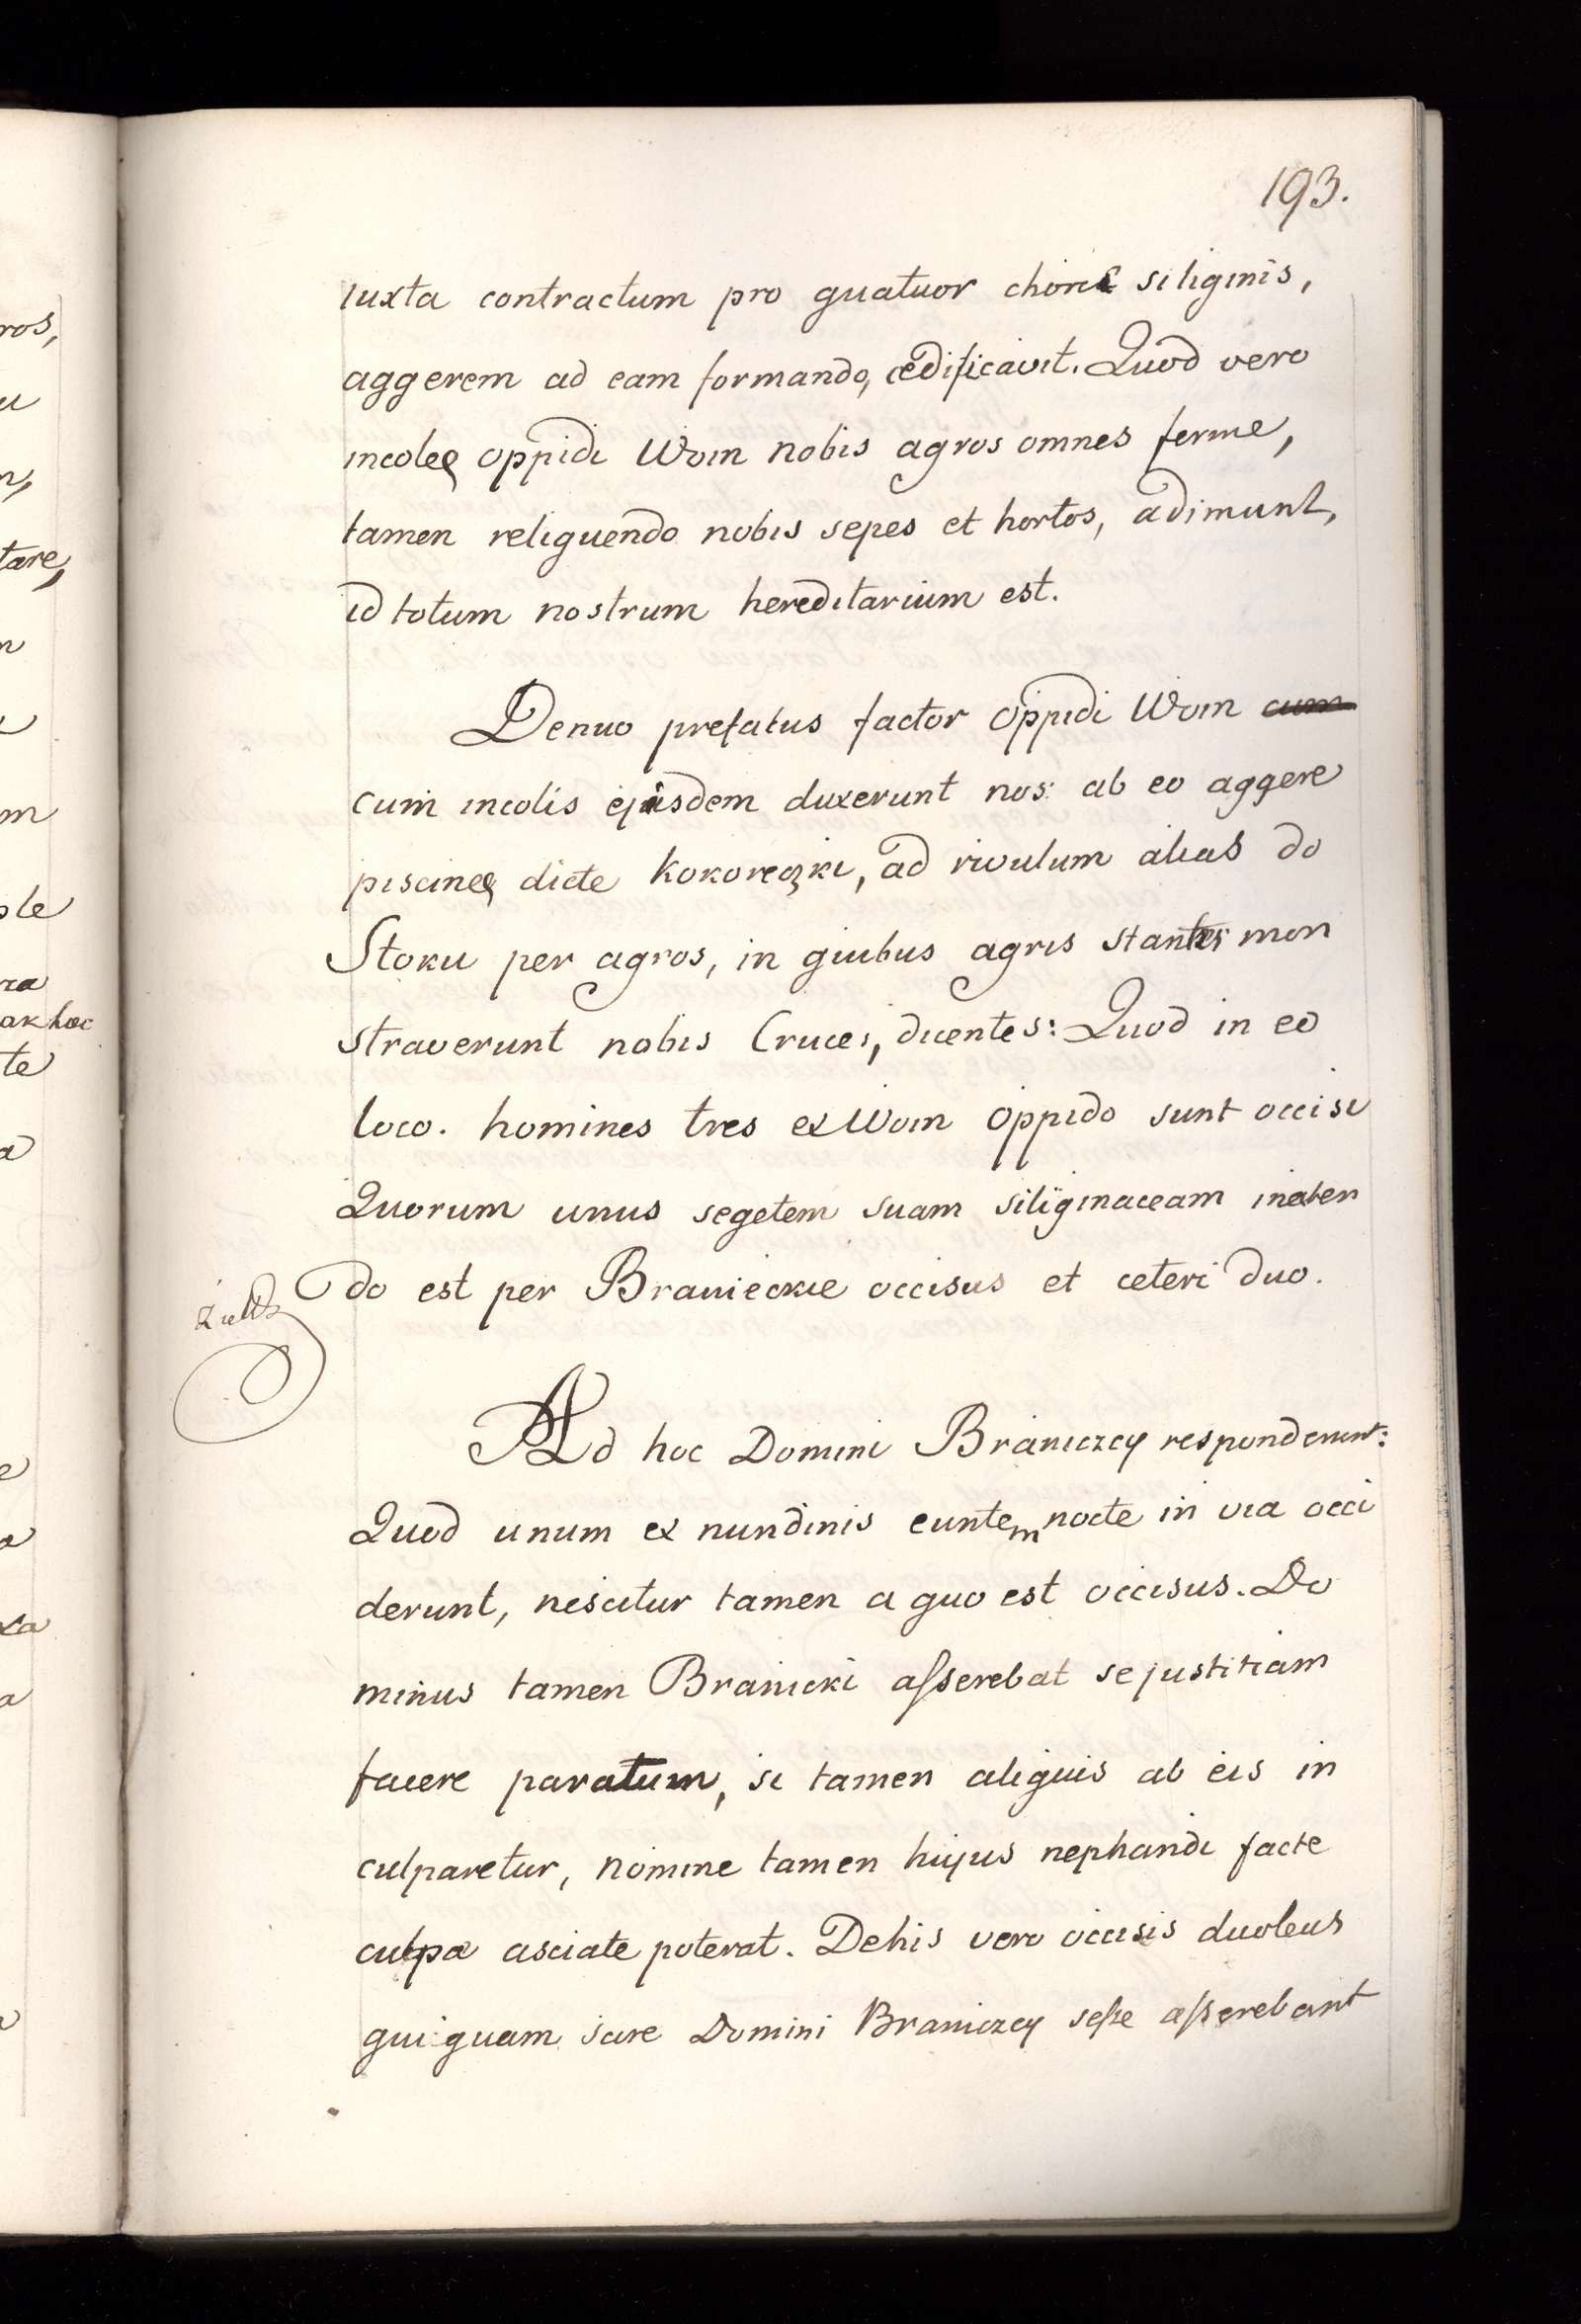 193.
iuxta contractum pro quatuor choris siliginis,
aggerem ad eam formando, ædificavit. Quod vero
incolę oppidi Woin nobis agros omnes ferme,
tamen reliquendo nobis sepes et hortos, adimunt,
id totum nostrum hereditarium est.
Denuo prefatus factor oppidi Woin cum
cum incolis ejusdem duxerunt nos ab eo aggere
piscinę dicte Kokoreczki, ad rivulum alias do
Stoku per agros, in quibus agris stantes mon
straverunt nobis Cruces, dicentes: Quod in eo
loco. homines tres ex Woin oppido sunt occisi
Quorum unus segetem suam siliginaceam meten
do est per Branieckie occisus et ceteri duo.
Ad hoc Domini Braniczcy responderunt:
Quod unum ex nundinis euntem nocte in via occi
derunt, nescitur tamen a quo est occisus. Do
minus tamen Branicki asserebat se justitiam
facere paratum, si tamen aliquis ab eis in
culparetur, nomine tamen hujus nephandi facte
culpa asciate poterat. De his vero occisis duobus
quiquam scire Domini Braniczcy sesse asserebant
ros,
tare,
ple
ra
te